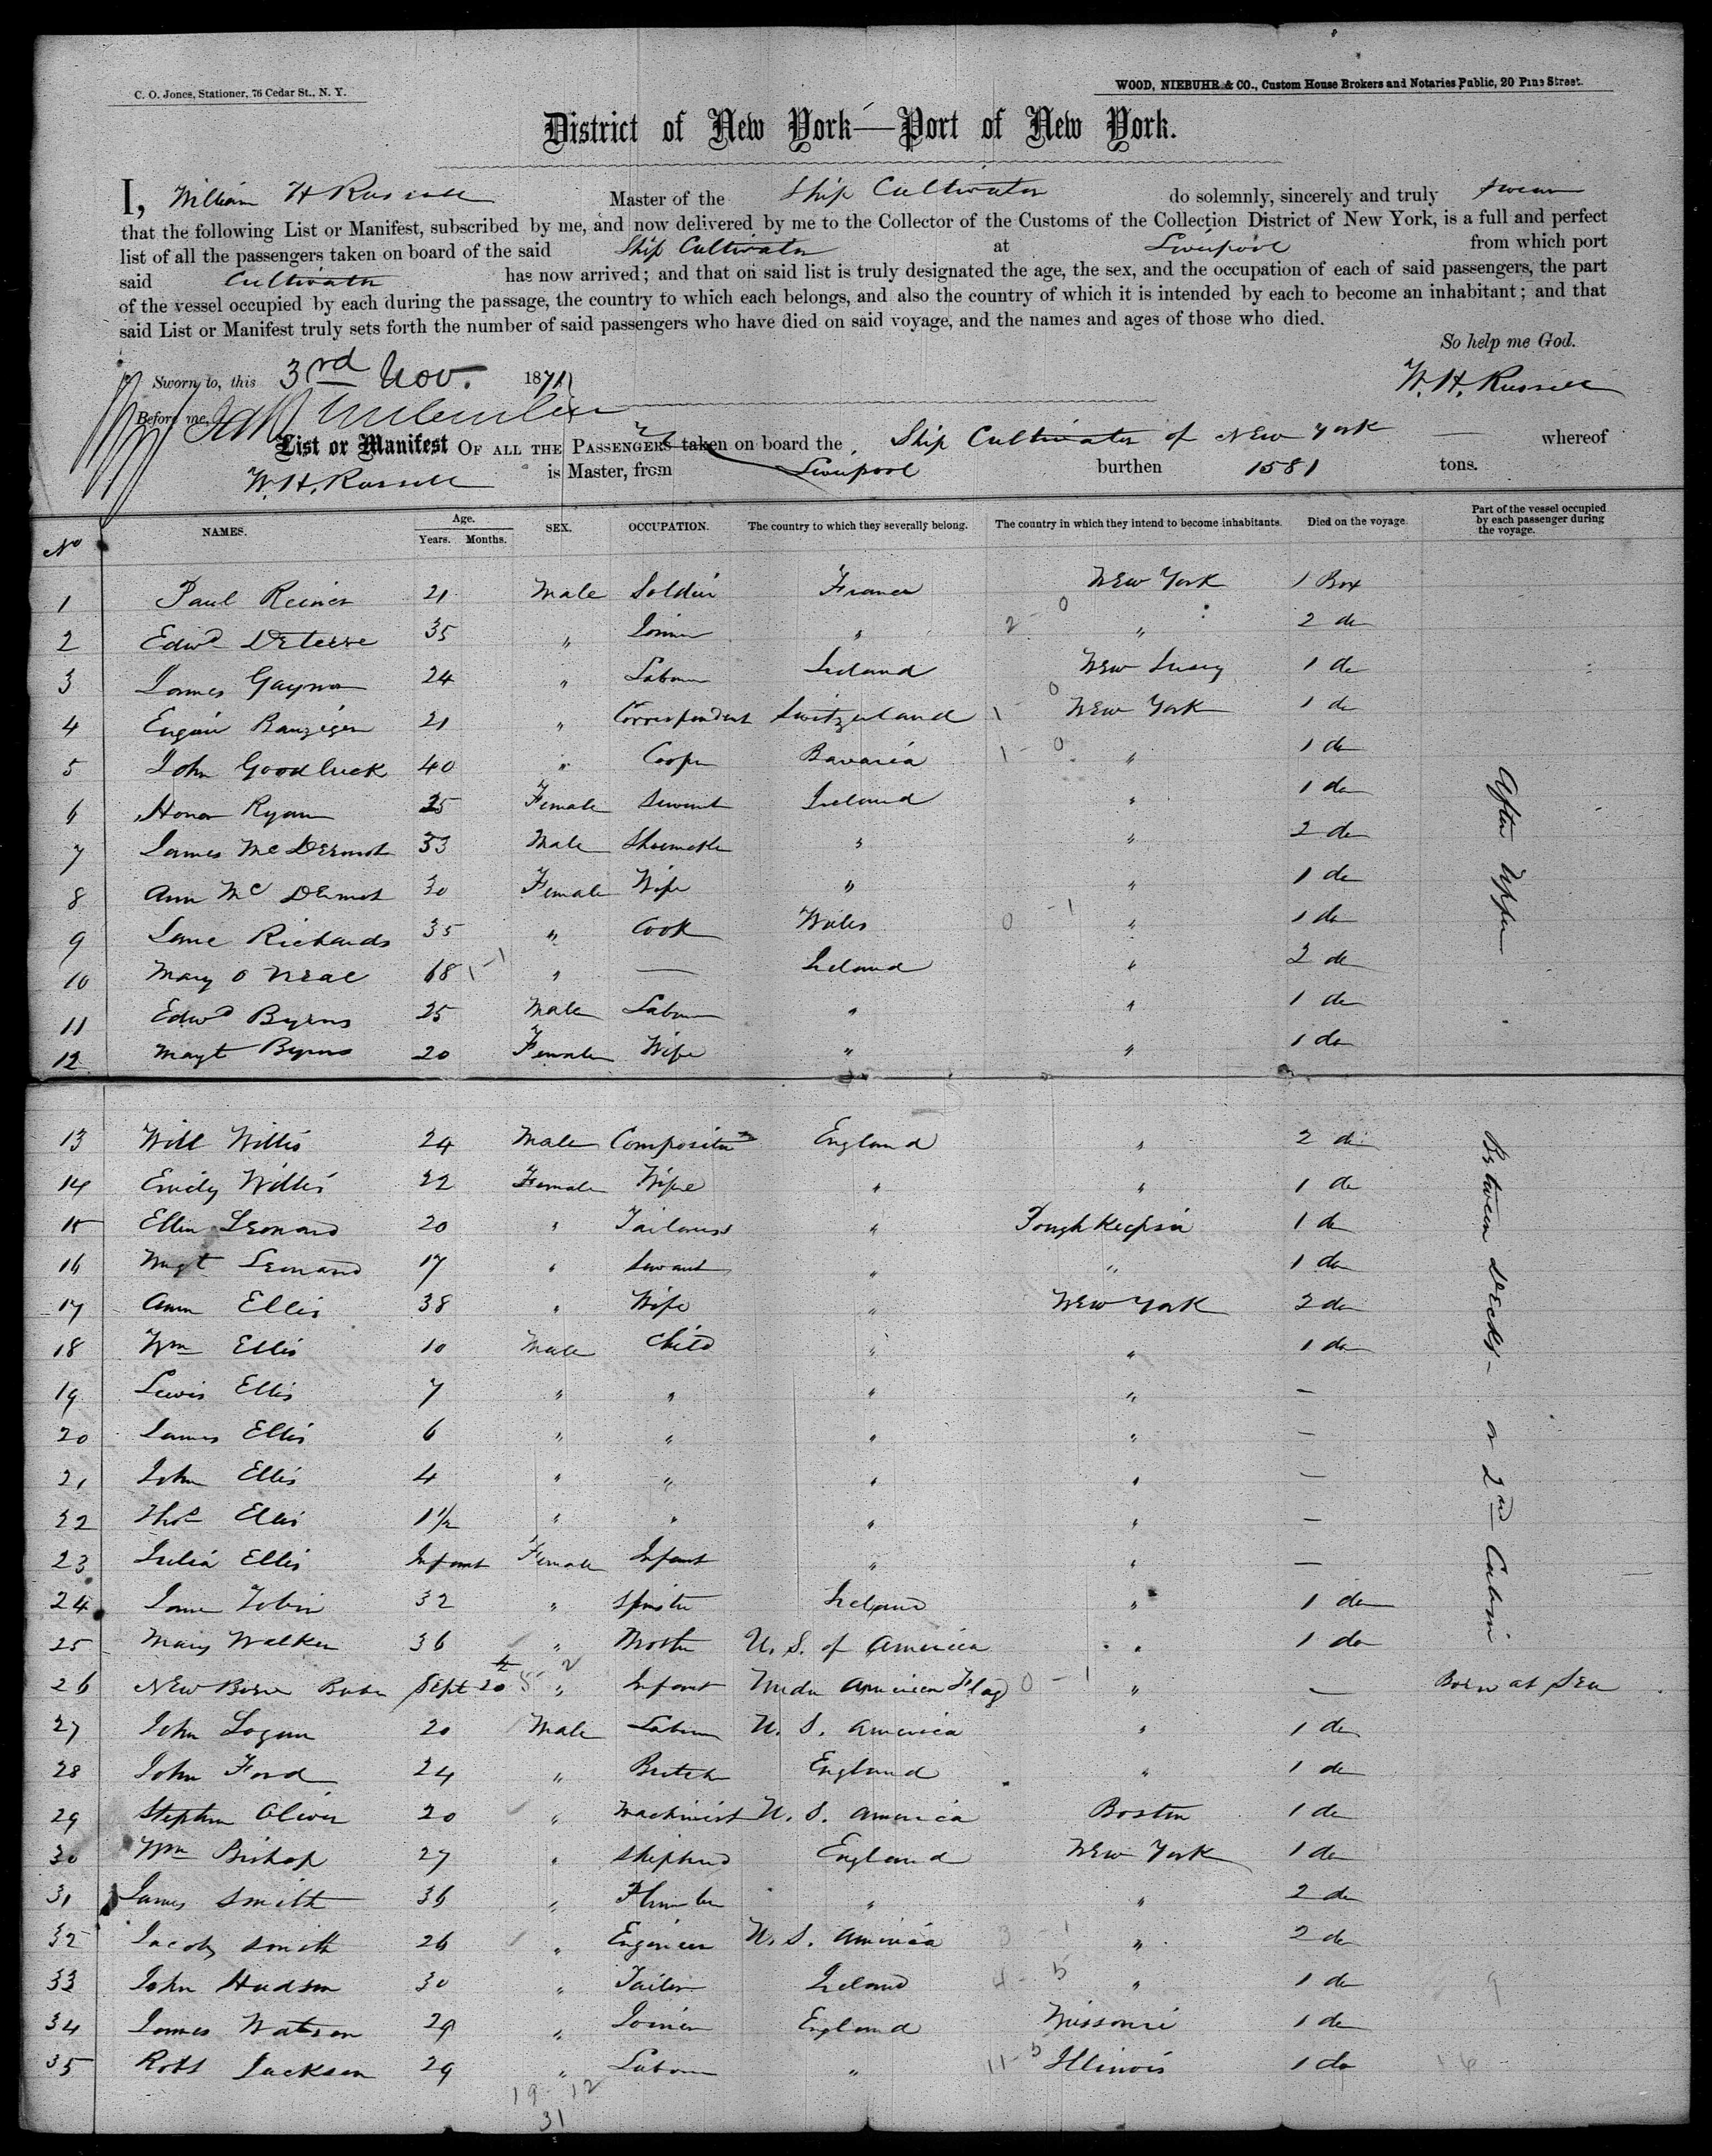 C. O. Jones, Stationer, 76 Cedar St., N. Y.
WOOD, NIEBUHR & CO., Custom House Brokers and Notaries Public, 20 Pine Street.
District of New York—Port of New York.
I, William H Russell Master of the Ship Cultivator do solemnly, sincerely and truly swear
that the following List or Manifest, subscribed by me, and now delivered by me to the Collector of the Customs of the Collection District of New York, is a full and perfect
list of all the passengers taken on board of the said Ship Cultivator at Liverpool from which port
said Cultivator has now arrived; and that on said list is truly designated the age, the sex, and the occupation of each of said passengers, the part
of the vessel occupied by each during the passage, the country to which each belongs, and also the country of which it is intended by each to become an inhabitant; and that
said List or Manifest truly sets forth the number of said passengers who have died on said voyage, and the names and ages of those who died.
So help me God.
Sworn to, this 3rd Nov. 1871
W. H. Russell
Before me,
List or Manifest OF ALL THE PASSENGERS taken on board the Ship Cultivator of New York whereof
W. H. Russell is Master, from Liverpool burthen 1581 tons.
No NAMES. Age. Years. Months. SEX. OCCUPATION. The country to which they severally belong. The country in which they intend to become inhabitants. Died on the voyage. Part of the vessel occupied by each passenger during the voyage.
1 Paul Reiner 21 Male Soldier France New York 1 Box
2 Edwd Deterre 35 " Joiner " 2 - 0 " 2 do
3 James Gaynor 24 " Labour Ireland New Jersey 1 do
4 Eugene Banzeger 21 " Correspondent Switzerland 1 - 0 New York 1 do
5 John Goodluck 40 " Cooper Bavaria 1 - 0 " 1 do
6 Honor Ryan 25 Female Servant Ireland " 1 do
7 James Mc Dermot 33 Male Shoemaker " " 2 do
8 Ann Mc Dermot 30 Female Wife " " 1 do
9 Jane Richards 35 " Cook Wales 0 - 1 " 1 do
10 Mary O Neal 68 1-1 " — Ireland " 2 do
11 Edwd Byrns 25 Male Labour " " 1 do
12 Magt Byrns 20 Female Wife " " 1 do
After Upper
13 Will Willis 24 Male Compositor England " 2 do
14 Emily Willis 22 Female Wife " " 1 do
15 Ellen Leonard 20 " Tailoress " Poughkeepsie 1 do
16 Magt Leonard 17 " Servant " " 1 do
17 Ann Ellis 38 " Wife " New York 2 do
18 Wm Ellis 10 Male Child " " 1 do
19 Lewis Ellis 7 " " " " —
20 James Ellis 6 " " " " —
21 John Ellis 4 " " " " —
22 Thos Ellis 1½ " " " " —
23 Julia Ellis Infant Female Infant " " —
24 Jane Tobin 32 " Spinster Ireland " 1 do
25 Mary Walker 36 " Mother U. S. of America " 1 do
26 New Born Babe Sept 20 5 - 2 " Infant Under American Flag 0 - 1 " — Born at Sea
27 John Logan 20 Male Labour U. S. America " 1 do
28 John Ford 24 " Butcher England " 1 do
29 Stephen Oliver 20 " Machinist U. S. America Boston 1 do
30 Wm Bishop 27 " Shepherd England New York 1 do
31 James Smith 36 " Plumber " " 2 do
32 Jacob Smith 26 " Engineer U. S. America 3 - 1 " 2 do
33 John Hudson 30 " Tailor Ireland 4 - 5 " 1 do 9
34 James Watson 29 " Joiner England Missouri 1 do
35 Robt Jackson 29 " Labour " 11-5 Illinois 1 do 16
Between Decks - or 2nd Cabin
19 - 12
31